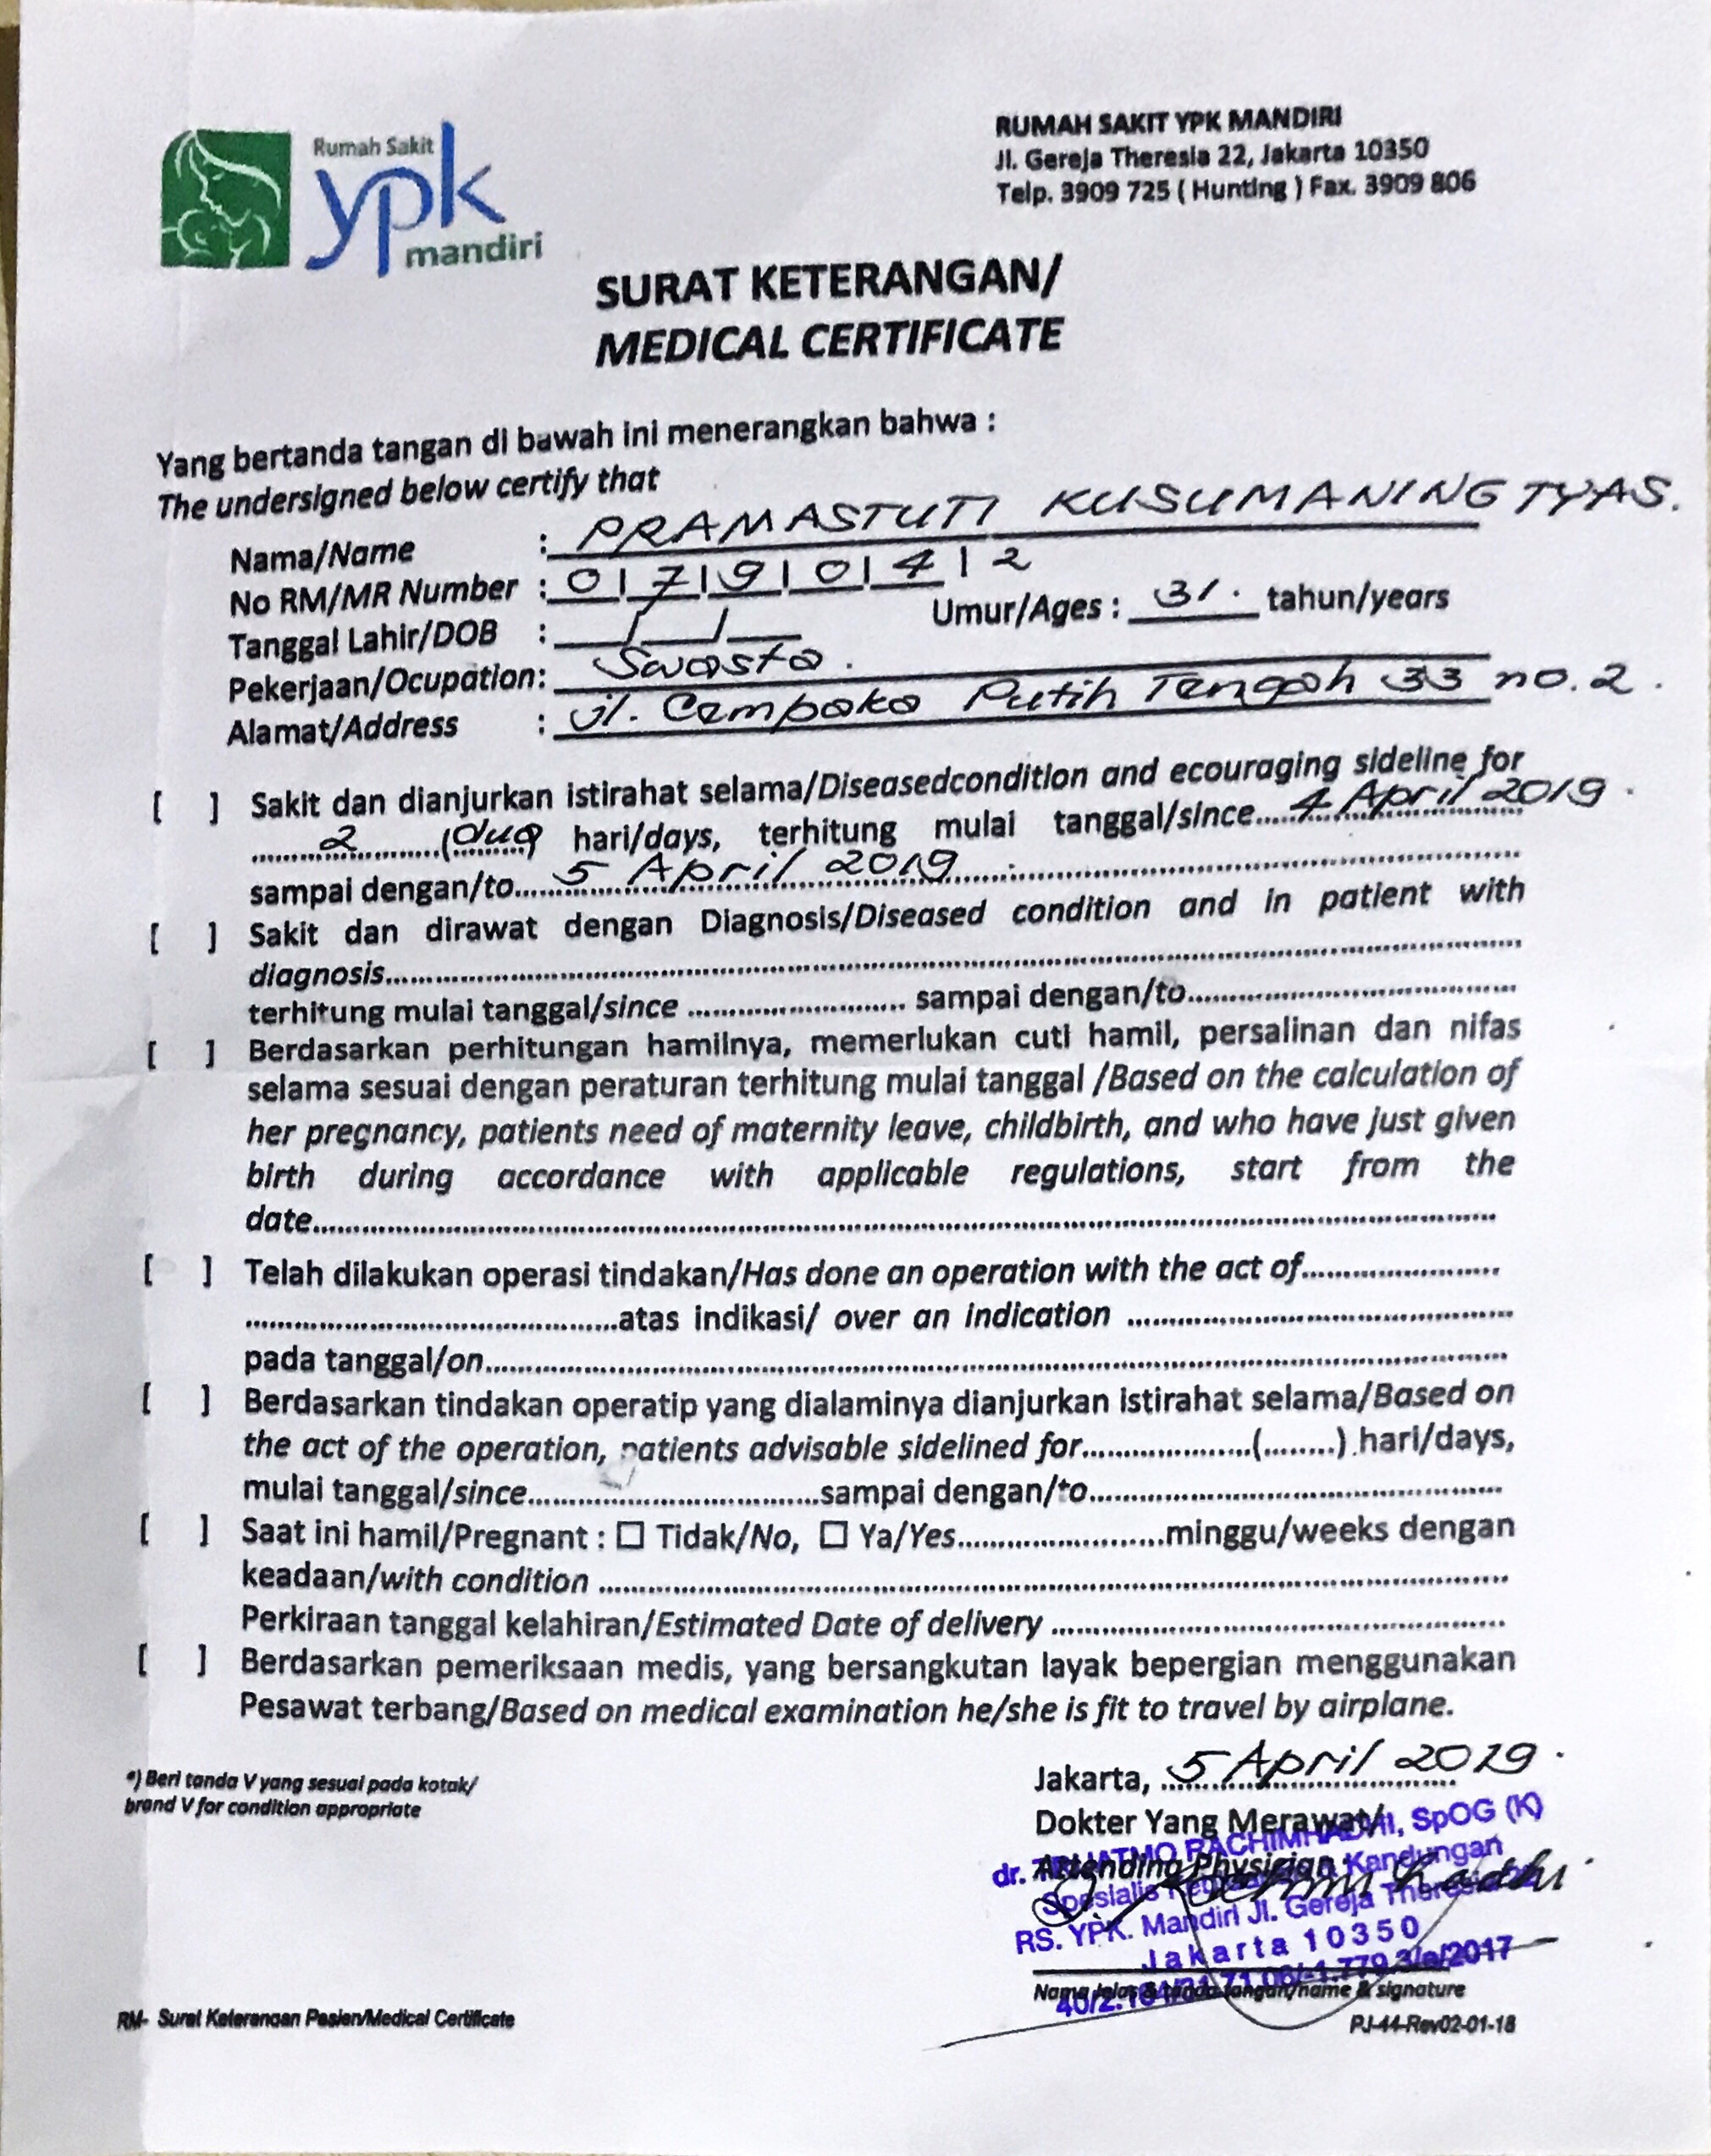 Rumah Sakit
ypk
mandiri
RUMAH SAKIT YPK MANDIRI
Jl. Gereja Theresia 22, Jakarta 10350
Telp. 3909 725 ( Hunting ) Fax. 3909 806
SURAT KETERANGAN/
MEDICAL CERTIFICATE
Yang bertanda tangan di bawah ini menerangkan bahwa :
The undersigned below certify that
Nama/Name : PRAMASTUTI KUSUMANINGTYAS.
No RM/MR Number : 0|7|9|0|4|2
Tanggal Lahir/DOB : __/__/__ Umur/Ages : 31. tahun/years
Pekerjaan/Ocupation: Swasta.
Alamat/Address : jl. Cempaka Putih Tengah 33 no. 2.
[ ] Sakit dan dianjurkan istirahat selama/Diseasedcondition and ecouraging sideline for
2 (dua) hari/days, terhitung mulai tanggal/since 4 April 2019.
sampai dengan/to 5 April 2019
[ ] Sakit dan dirawat dengan Diagnosis/Diseased condition and in patient with
diagnosis..........
terhitung mulai tanggal/since .......... sampai dengan/to..........
[ ] Berdasarkan perhitungan hamilnya, memerlukan cuti hamil, persalinan dan nifas
selama sesuai dengan peraturan terhitung mulai tanggal /Based on the calculation of
her pregnancy, patients need of maternity leave, childbirth, and who have just given
birth during accordance with applicable regulations, start from the
date..........
[ ] Telah dilakukan operasi tindakan/Has done an operation with the act of..........
..........atas indikasi/ over an indication ..........
pada tanggal/on..........
[ ] Berdasarkan tindakan operatip yang dialaminya dianjurkan istirahat selama/Based on
the act of the operation, patients advisable sidelined for..........(........) hari/days,
mulai tanggal/since..........sampai dengan/to..........
[ ] Saat ini hamil/Pregnant : ☐ Tidak/No, ☐ Ya/Yes..........minggu/weeks dengan
keadaan/with condition ..........
Perkiraan tanggal kelahiran/Estimated Date of delivery ..........
[ ] Berdasarkan pemeriksaan medis, yang bersangkutan layak bepergian menggunakan
Pesawat terbang/Based on medical examination he/she is fit to travel by airplane.
*) Beri tanda V yang sesuai pada kotak/
brand V for condition appropriate
Jakarta, 5 April 2019.
Dokter Yang Merawat/
Attending Physician
dr. RACHIMHADHI, SpOG (K)
Spesialis Kandungan
RS. YPK. Mandiri Jl. Gereja Theresia
Jakarta 10350
Nama jelas & tanda tangan/name & signature
RM- Surat Keterangan Pasien/Medical Certificate
PJ-44-Rev02-01-18